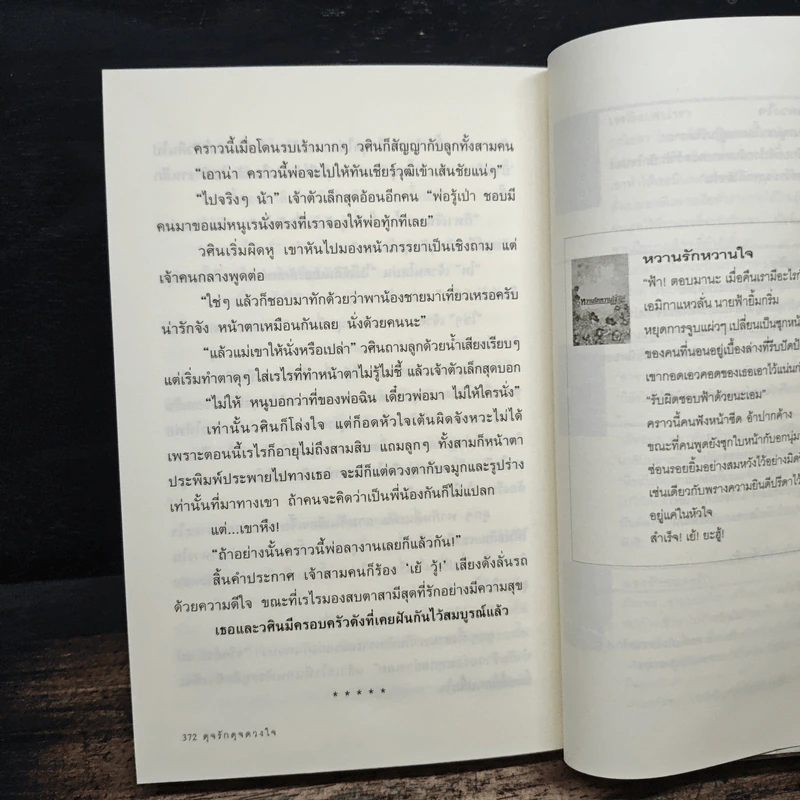 คราวนี้เมื่อโดนรบเร้ามากๆ วศินก็สัญญากับลูกทั้งสามคน
“เอาน่า คราวนี้พ่อจะไปให้ทันเชียร์วุฒิเข้าเส้นชัยแน่ๆ”
“ไปจริงๆ น้า” เจ้าตัวเล็กสุดอ้อนอีกคน “พ่อรู้เป่า ชอบมี
คนมาขอแม่หนูเรนั่งตรงที่เราจองให้พ่อทุ้กทีเลย”
วศินเริ่มผิดหู เขาหันไปมองหน้าภรรยาเป็นเชิงถาม แต่
เจ้าคนกลางพูดต่อ
“ใช่ๆ แล้วก็ชอบมาทักด้วยว่าพาน้องชายมาเที่ยวเหรอครับ
น่ารักจัง หน้าตาเหมือนกันเลย นั่งด้วยคนนะ”
“แล้วแม่เขาให้นั่งหรือเปล่า” วศินถามลูกด้วยน้ำเสียงเรียบๆ
แต่เริ่มทำตาดุๆ ใส่เรไรที่ทำหน้าตาไม่รู้ไม่ชี้ แล้วเจ้าตัวเล็กสุดบอก
“ไม่ให้ หนูบอกว่าที่ของพ่อฉิน เดี๋ยวพ่อมา ไม่ให้ใครนั่ง”
เท่านั้นวศินก็โล่งใจ แต่ก็อดหัวใจเต้นผิดจังหวะไม่ได้
เพราะตอนนี้เรไรก็อายุไม่ถึงสามสิบ แถมลูกๆ ทั้งสามก็หน้าตา
ประพิมพ์ประพายไปทางเธอ จะมีก็แต่ดวงตากับจมูกและรูปร่าง
เท่านั้นที่มาทางเขา ถ้าคนจะคิดว่าเป็นพี่น้องกันก็ไม่แปลก
แต่...เขาหึง!
“ถ้าอย่างนั้นคราวนี้พ่อลางานเลยก็แล้วกัน!”
สิ้นคำประกาศ เจ้าสามคนก็ร้อง ‘เย้ วู้!’ เสียงดังลั่นรถ
ด้วยความดีใจ ขณะที่เรไรมองสบตาสามีสุดที่รักอย่างมีความสุข
เธอและวศินมีครอบครัวดังที่เคยฝันกันไว้สมบูรณ์แล้ว
* * * * *
372 ดุจรักดุจดวงใจ
หวานรักหวานใจ
“ฟ้า! ตอบมานะ เมื่อคืนเรามีอะไรกั
เอมิกาแหวลั่น นายฟ้ายิ้มกริ่ม
หยุดการจูบแผ่วๆ เปลี่ยนเป็นซุกหน้
ของคนที่นอนอยู่เบื้องล่างที่รีบปัดป้
เขากอดเอวคอดของเธอเอาไว้แน่นก่
“รับผิดชอบฟ้าด้วยนะเอม”
คราวนี้คนฟังหน้าซีด อ้าปากค้าง
ขณะที่คนพูดยังซุกใบหน้ากับอกนุ่ม
ซ่อนรอยยิ้มอย่างสมหวังไว้อย่างมิดชิ
เช่นเดียวกับพรางความยินดีปรีดาไว้
อยู่แค่ในหัวใจ
สำเร็จ! เย้! ยะฮู้!